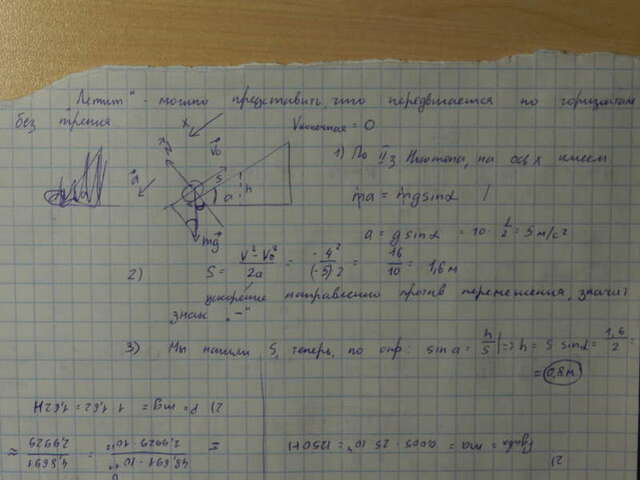 "Летит" - можно представить, что передвигается по горизонтали
без трения
Vконечная = 0
1) По II з. Ньютона, на ось x имеем
ma = mg sinα
a = g sinα = 10 · 1/2 = 5 м/с²
x N V₀ a S h α mg
2) S = (V² - V₀²)/2a = -4²/(-5)2 = 16/10 = 1,6 м
ускорение направленно против перемещения, значит
знак "-"
3) Мы нашли S, теперь, по опр: sin α = h/S => h = S sinα = 1,6/2 =
= 0,8 м
2) P = mg = 1 · 1,62 = 1,62 Н
2)
Fуда = ma = 0,005 · 25 · 10⁴ = 1250 Н